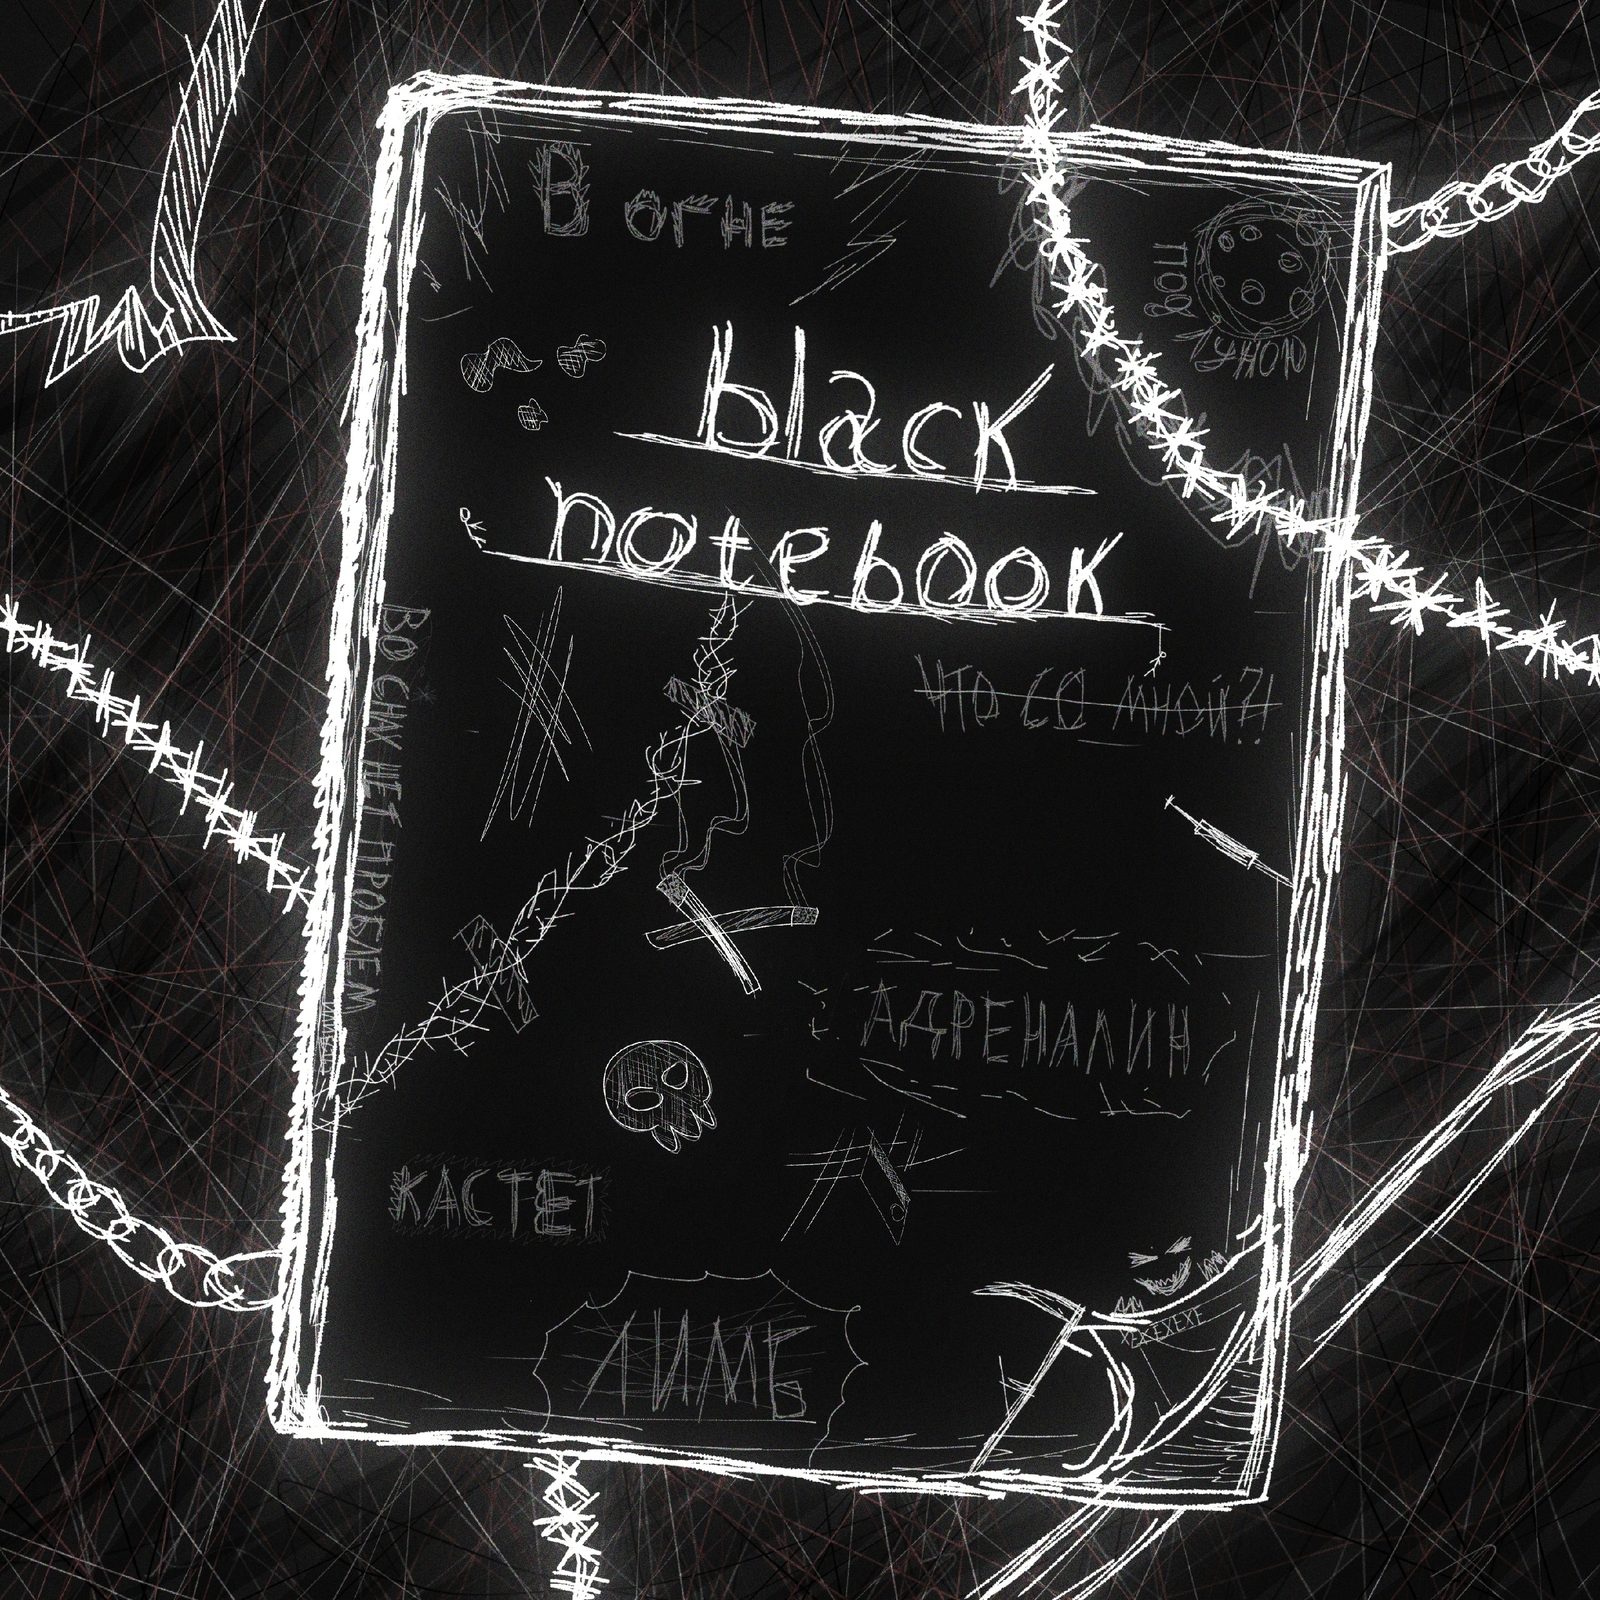 В огне
под
луною
black
notebook
что со мной?!
Во снах нет проблем
АДРЕНАЛИН
КАСТЕТ
ХЕХЕХЕХЕ
ЛИМБ